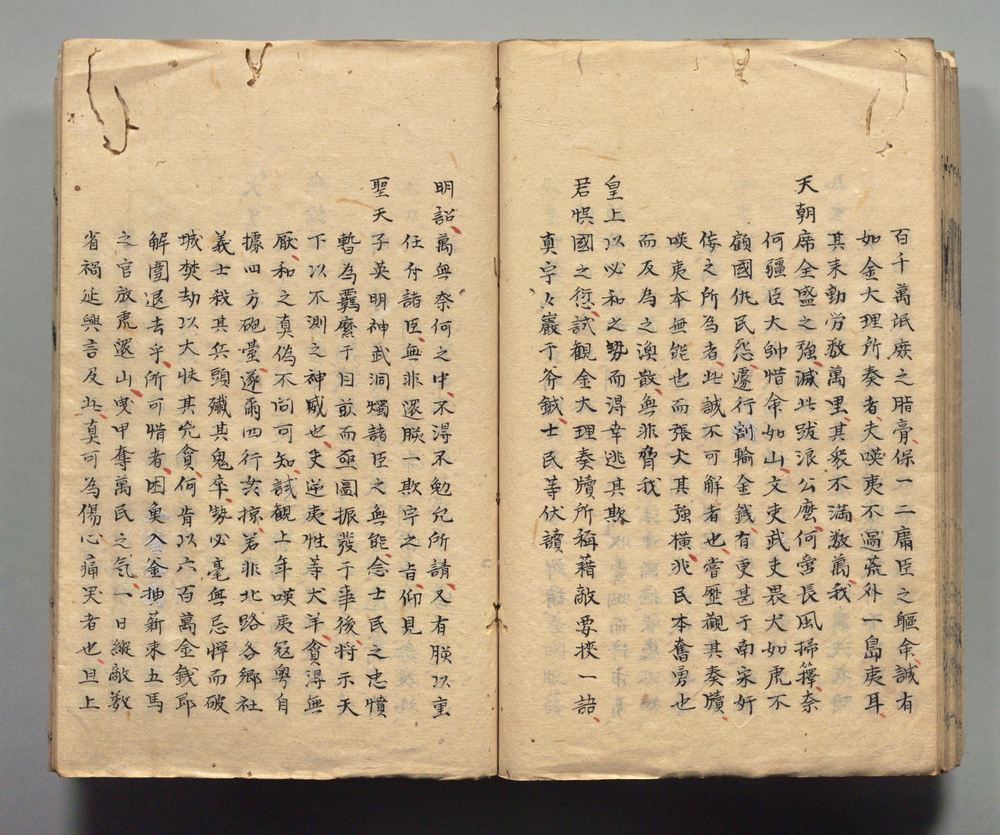 百千萬氓庶之脂膏保一二庸臣之軀命誠有
如金大理所奏者夫嘆夷不過荒外一島夷耳
其来勁労数萬里其衆不滿数萬我
天朝席全盛之強滅此跋浪公麽何啻長風掃籜奈
何疆臣大帥惜命如山文吏武吏畏犬如虎不
顧國仇民怨遽行割輸金銭有更甚于南宋奸
倿之所為者此誠不可解者也嘗歴觀其奏牘
嘆夷本無能也而張大其強横兆民本奮勇也
而反為之渙散無非脅我
皇上以必和之勢而得幸逃其欺
君悞國之愆試観金大理奏牘所稱藉敵要挟一語
真字々嚴于斧鉞士民等伏讀
明詔萬無奈何之中不得不勉允所請又有朕以重
任付諸臣無非還朕一欺字之旨仰見
聖天子英明神武洞燭諸臣之無能念士民之忠憤
暫為羈縻于目前而亟圖振發于事後将示天
下以不測之神威也夫逆夷性等犬羊貪得無
厭和之真偽不問可知試観上年嘆夷寇粤自
據四方砲臺遂爾四行攻掠若非北路各鄉社
義士殺其兵頭殲其鬼卒勢必毫無忌憚而破
城焚劫以大快其兇貪何肯以六百萬金銭即
解圍退去乎所可惜者困魚入釜抽薪来五馬
之官放虎還山曳甲奪萬民之氣一日縱敵数
省禍延興言及此真可為傷心痛哭者也且上